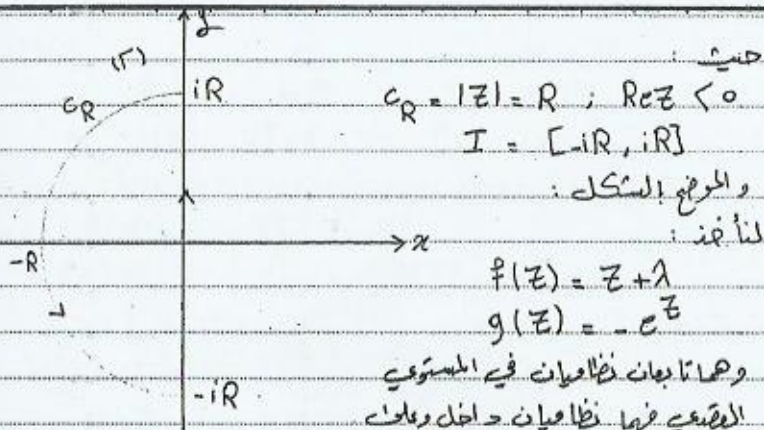 y
(Γ)
C_R
iR
-R
x
-iR
حيث :
C_R = |Z| = R ; ReZ < 0
I = [-iR , iR]
و الموضح بالشكل :
لنأخذ :
f(Z) = Z + λ
g(Z) = - e^Z
وهما تابعان نظاميان في المستوي
العقدي فهما نظاميان داخل وعلى